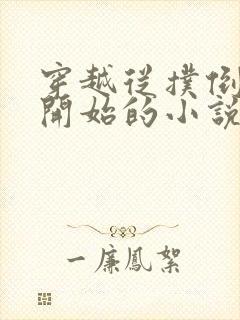 穿越從撲倒
開始的小說
一廉鳳絮